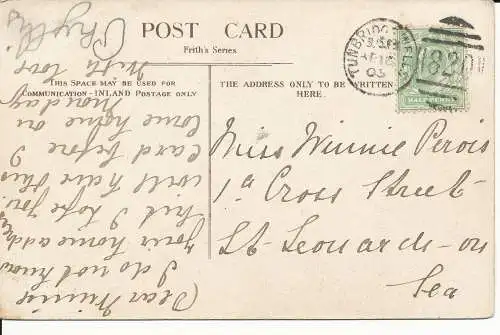 POST CARD
Frith's Series.
THIS SPACE MAY BE USED FOR
COMMUNICATION - INLAND POSTAGE ONLY
THE ADDRESS ONLY TO BE WRITTEN
HERE.
TUNBRIDGE WELLS
AP 16
03
820
HALF PENNY
Miss Winnie Pervis
1a Cross Street
St Leonards-on
Sea
Dear Winnie
I do not know
your home address
but I hope you
will have this
card before I
come home on
Monday
With love
Phyllis